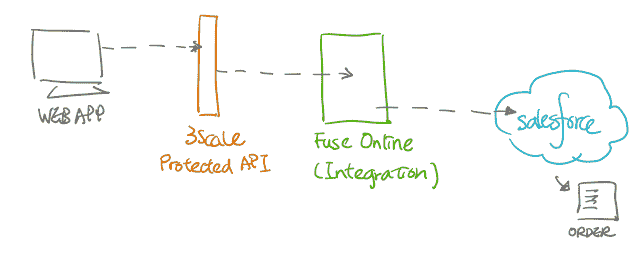 WEB APP
3Scale
Protected API
Fuse Online
(Integration)
salesforce
ORDER